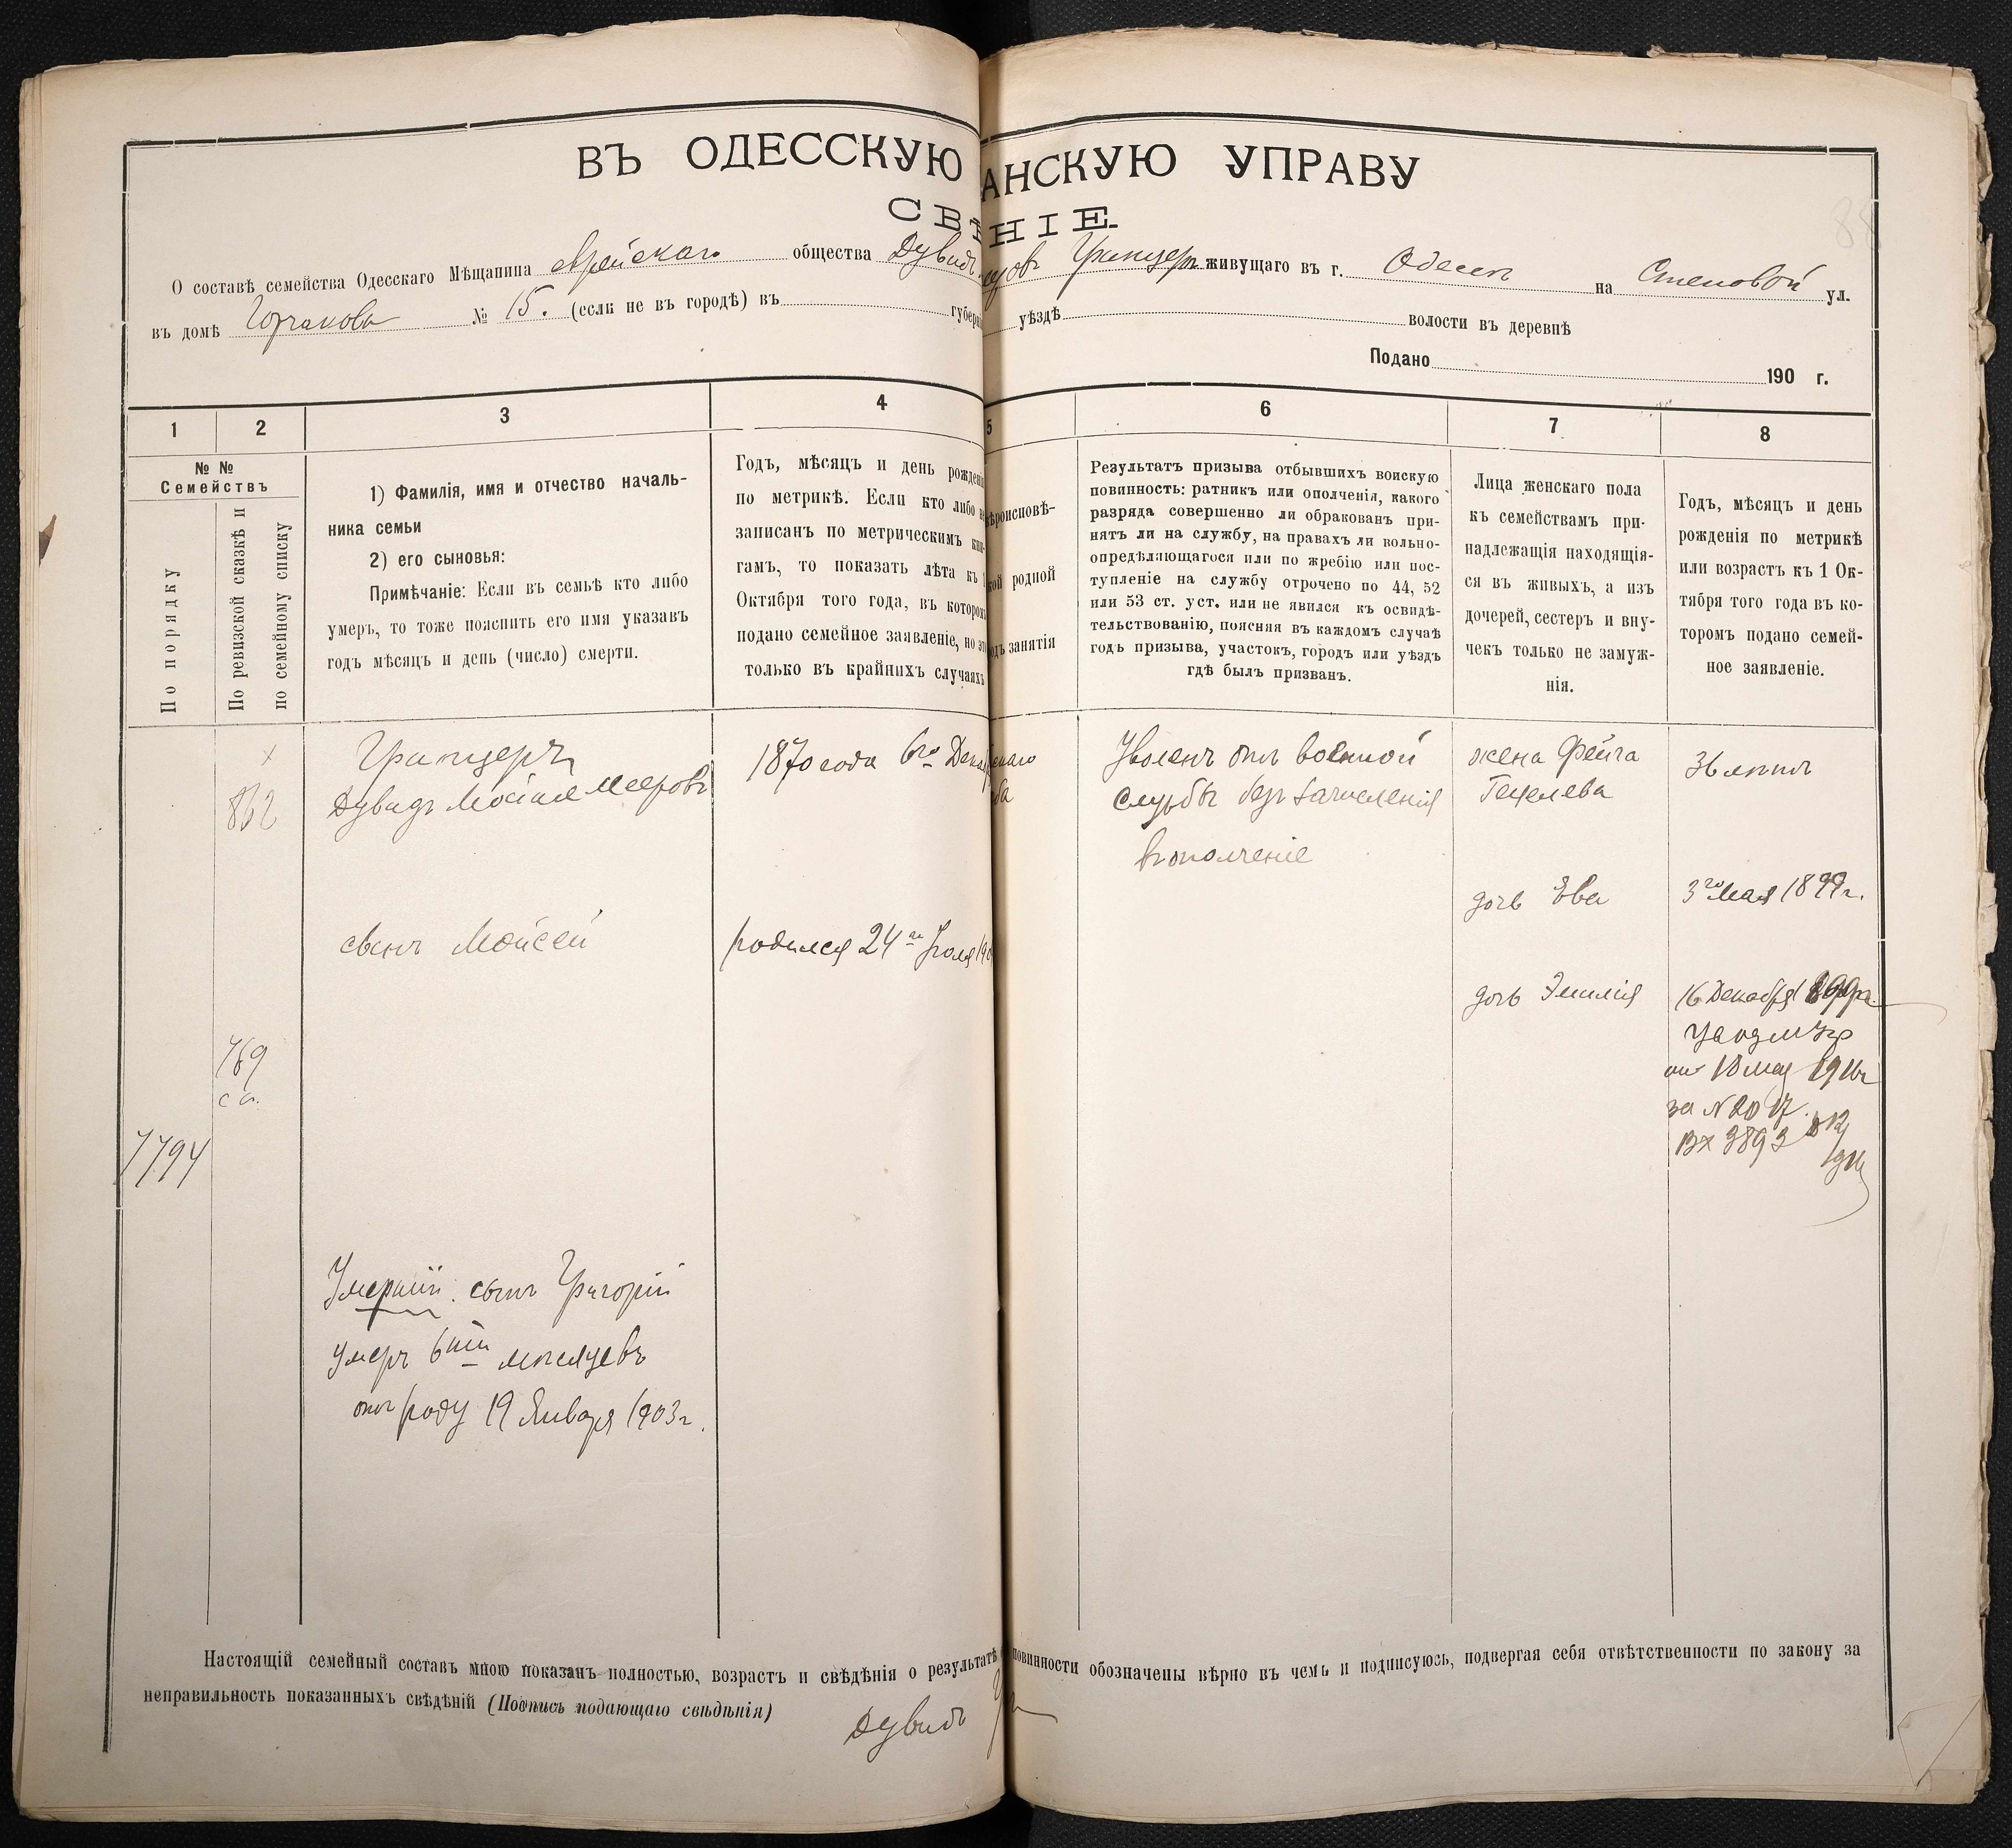 ВЪ ОДЕССКУЮ АНСКУЮ УПРАВУ
СВѢ НІЕ.
О составѣ семейства Одесскаго Мѣщанина еврейскаго общества Дувидъ Гринцеръ живущаго въ г. Одессѣ на Степовой ул.
въ домѣ Горчакова № 15. (если не въ городѣ) въ губерн уѣздѣ волости въ деревнѣ
Подано 190 г.
1 2 3 4 5 6 7 8
№ №
Семействъ
По порядку
По ревизской сказкѣ и
по семейному списку
1) Фамилія, имя и отчество началь-
ника семьи
2) его сыновья:
Примѣчаніе: Если въ семьѣ кто либо
умеръ, то тоже пояснить его имя указавъ
годъ мѣсяцъ и день (число) смерти.
Годъ, мѣсяцъ и день рожден
по метрикѣ. Если кто либо не
записанъ по метрическимъ кни-
гамъ, то показать лѣта къ 1
Октября того года, въ которомъ
подано семейное заявленіе, но это
только въ крайнихъ случаяхъ
ѣроисповѣ-
кой родной
одъ занятія
Результатъ призыва отбывшихъ воискую
повинность: ратникъ или ополченія, какого
разряда совершенно ли обракованъ при-
нятъ ли на службу, на правахъ ли вольно-
опредѣляющагося или по жребію или пос-
тупленіе на службу отрочено по 44, 52
или 53 ст. уст. или не явился къ освидѣ-
тельствованію, поясняя въ каждомъ случаѣ
годъ призыва, участокъ, городъ или уѣздъ
гдѣ былъ призванъ.
Лица женскаго пола
къ семействамъ при-
надлежащія находящія-
ся въ живыхъ, а изъ
дочерей, сестеръ и вну-
чекъ только не замуж-
нія.
Годъ, мѣсяцъ и день
рожденія по метрикѣ
или возрастъ къ 1 Ок-
тября того года въ ко-
торомъ подано семей-
ное заявленіе.
х
862
Гринцеръ
Дувидъ Мойше Мееровъ
1870 года 6го Дека
Уволенъ отъ военной
службы безъ зачисленія
въ ополченіе
жена Фейга
Гецелева
36 лѣтъ
дочь Ева
3го Мая 1899 г.
сынъ Мойсей
родился 24го Іюля 190
дочь Эмилія
16 Декабря
789
са.
7794
18 мая
за № 2017
Вх 3893
Умершій сынъ Григорій
умеръ 6ти мѣсяцевъ
отъ роду 19 Января 1903 г.
Настоящій семейный составъ мною показанъ полностью, возрастъ и свѣдѣнія о результатѣ повинности обозначены вѣрно въ чемъ и подписуюсь, подвергая себя отвѣтственности по закону за
неправильность показанныхъ свѣдѣній (Подпись подающаго свѣдѣнія)
Дувидъ